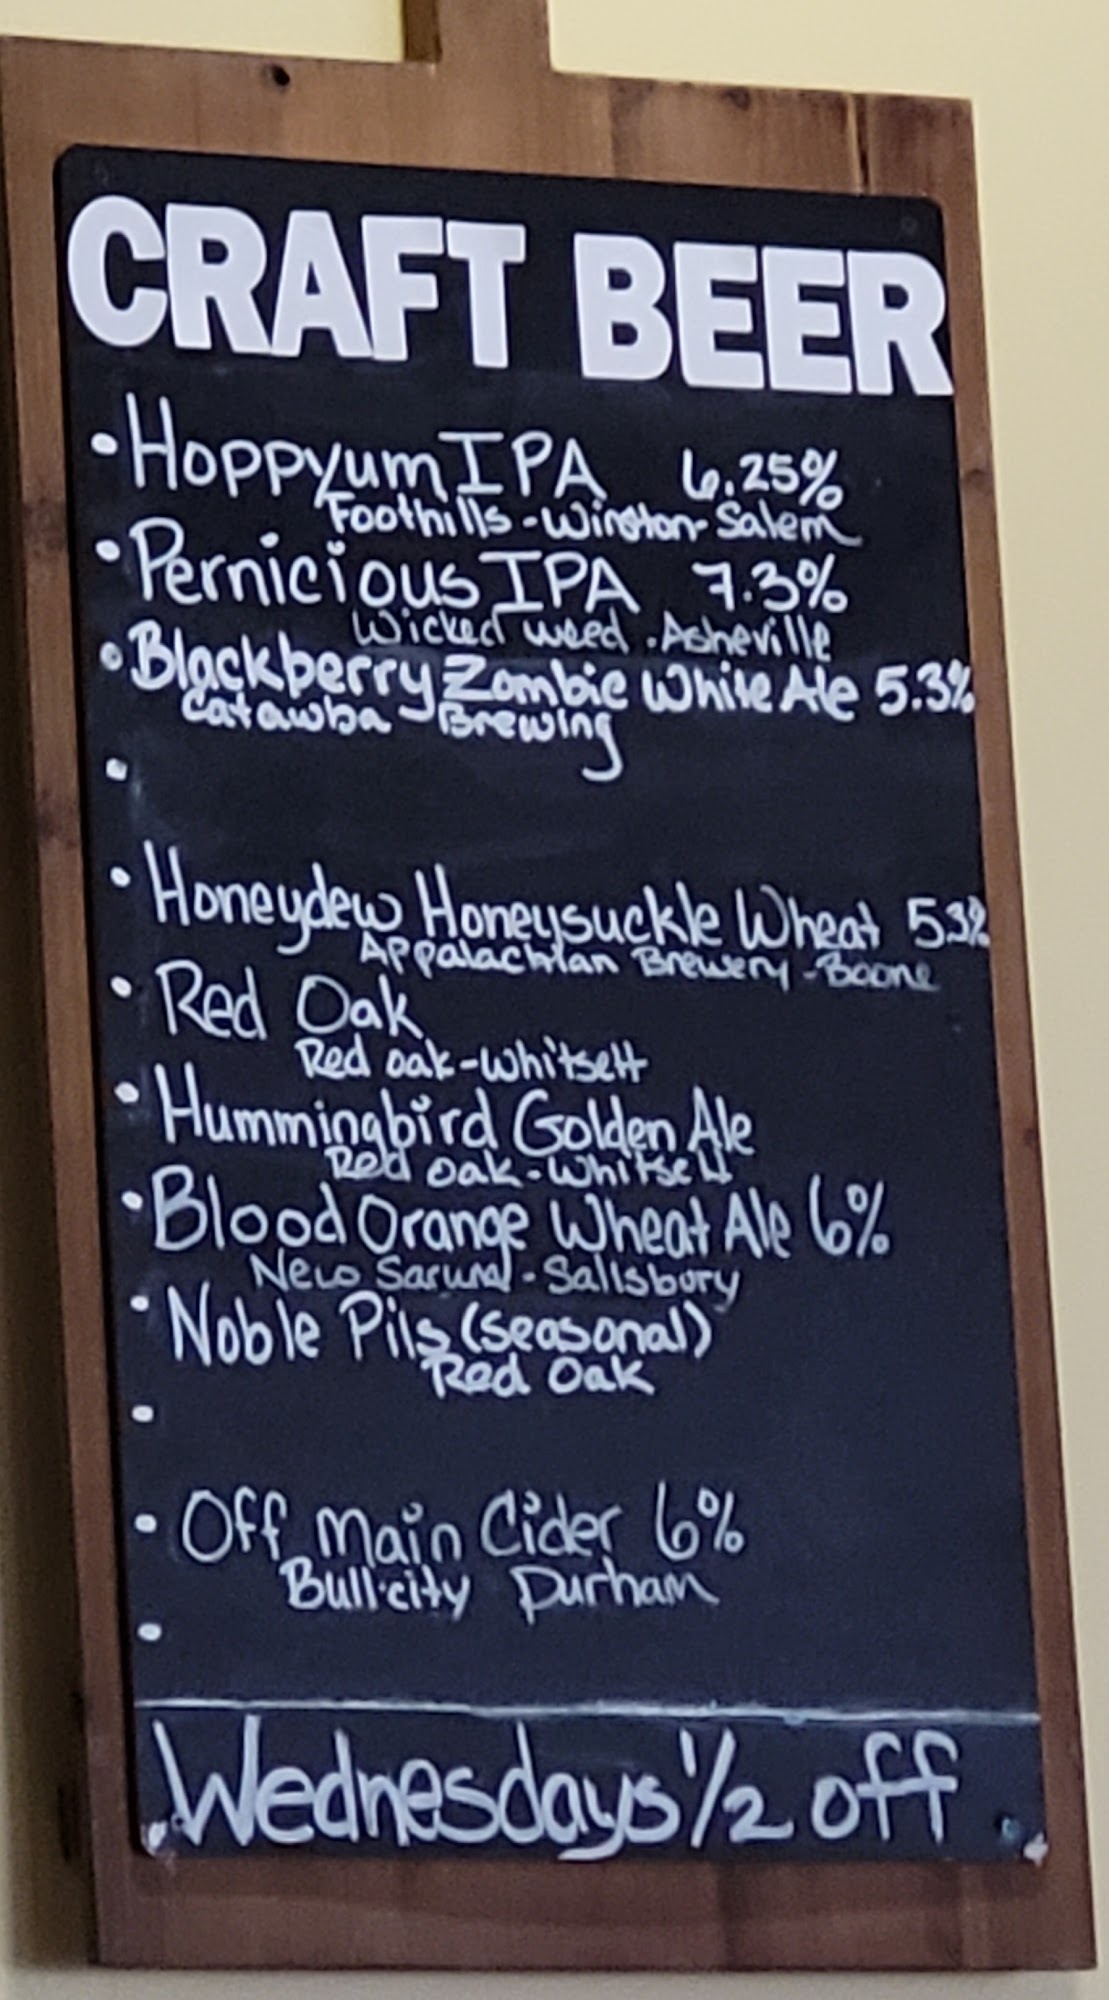 CRAFT BEER
• Hoppyum IPA 6.25%
Foothills - Winston-Salem
• Pernicious IPA 7.3%
Wicked weed . Asheville
• Blackberry Zombie White Ale 5.3%
Catawba Brewing
•
• Honeydew Honeysuckle Wheat 5.3%
Appalachian Brewery - Boone
• Red Oak
Red oak - Whitsett
• Hummingbird Golden Ale
Red oak - Whitsett
• Blood Orange Wheat Ale 6%
New Sarum - Salisbury
• Noble Pils (seasonal)
Red Oak
•
• Off Main Cider 6%
Bull-city Durham
•
Wednesdays 1/2 off